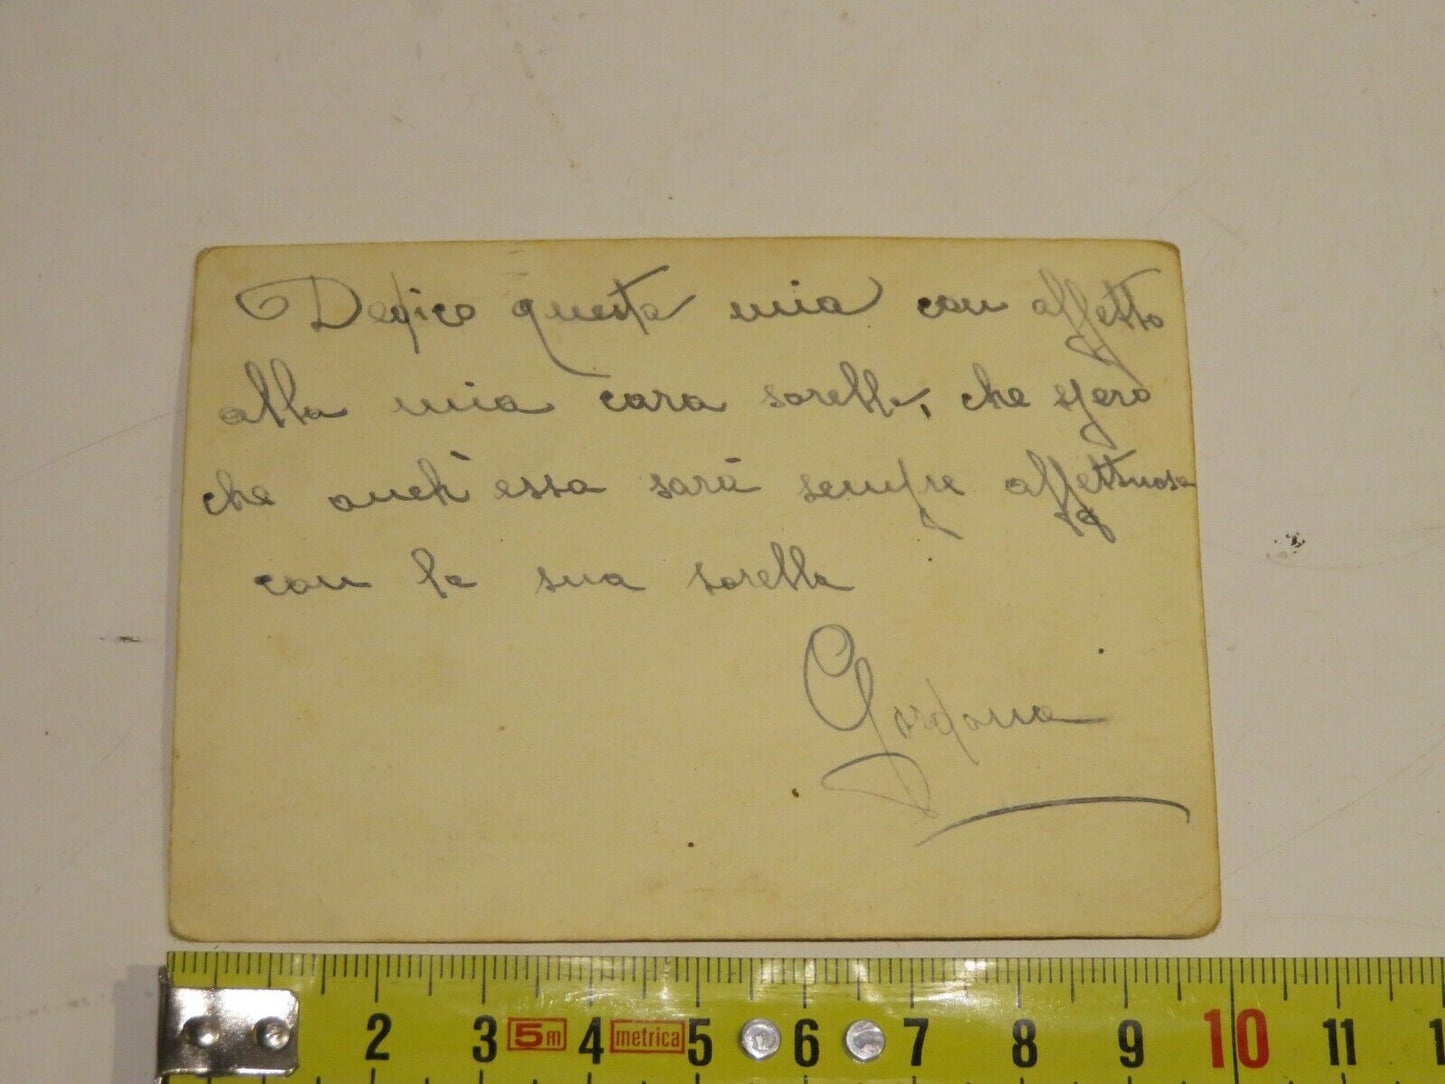 Dedico questa mia con affetto
alla mia cara sorella, che spero
che anch'essa sarà sempre affettuosa
con la sua sorella
Giordana
2 3 5m 4 metrica 5 6 7 8 9 10 11 1